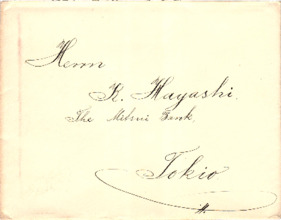 Herrn
K. Hayashi.
The Mitsui Bank
Tokio